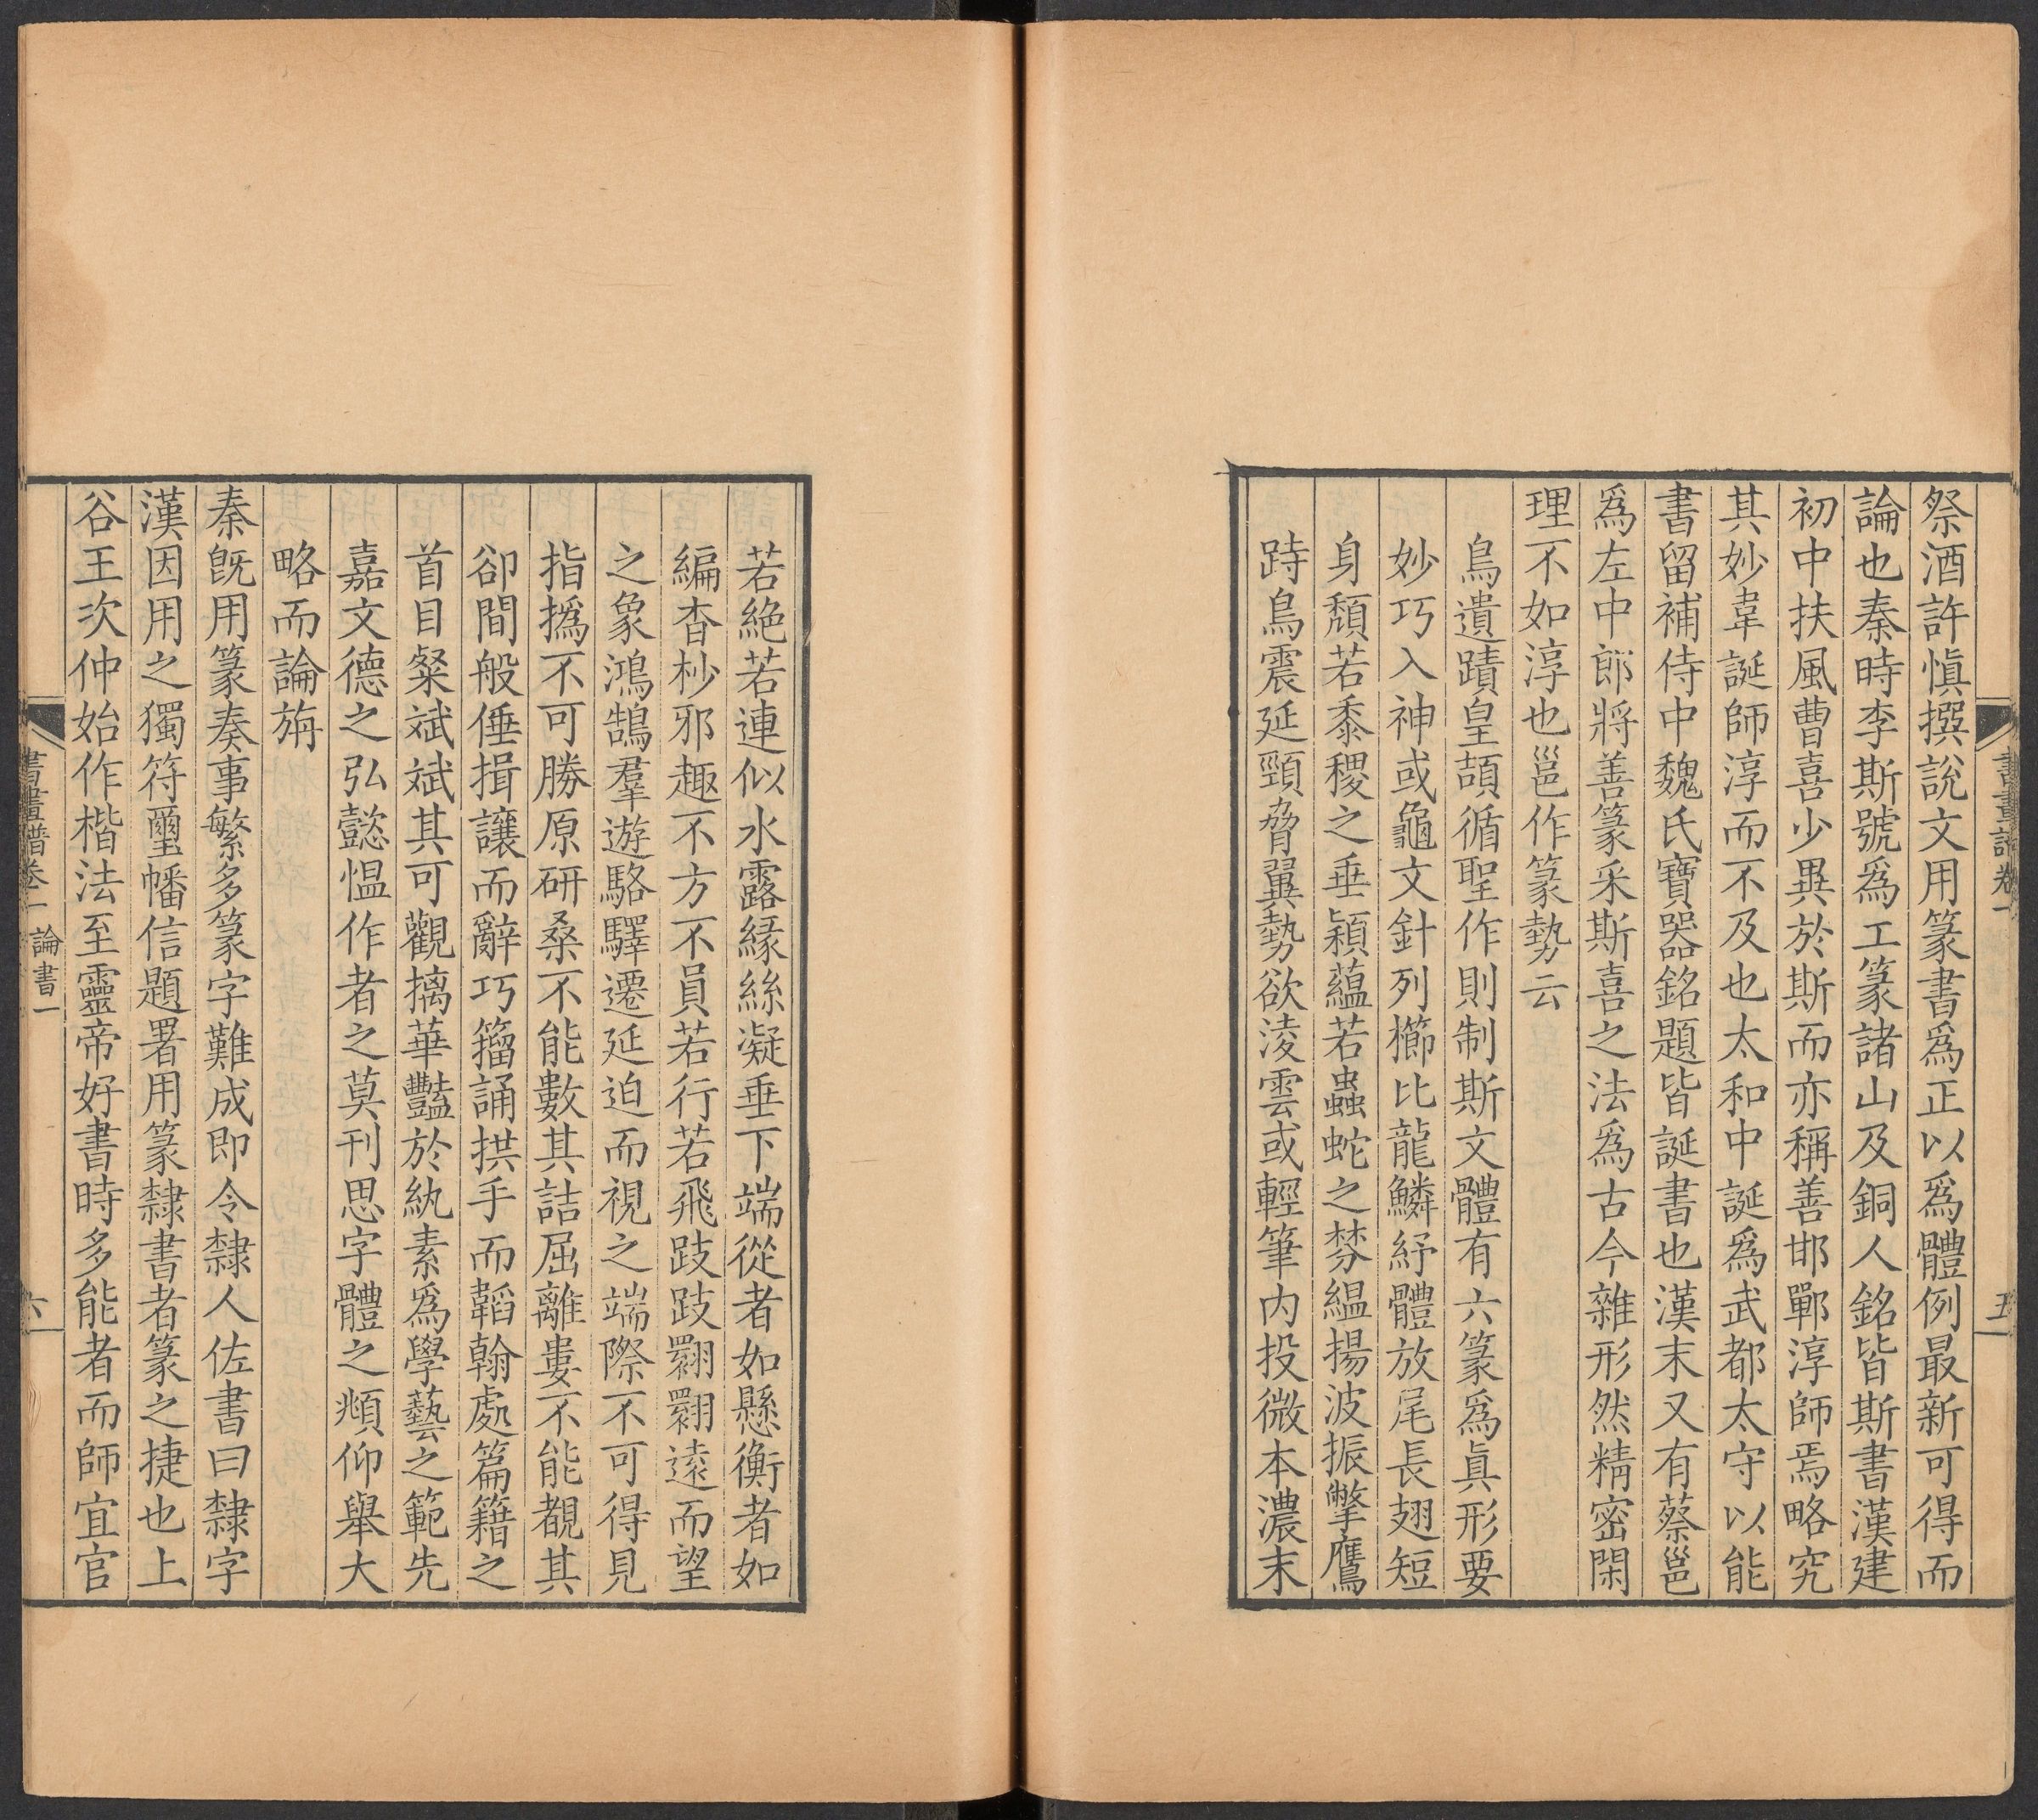 書畫譜卷一
五
祭酒許愼撰說文用篆書爲正以爲體例最新可得而
論也秦時李斯號爲工篆諸山及銅人銘皆斯書漢建
初中扶風曹喜少異於斯而亦稱善邯鄲淳師焉略究
其妙韋誕師淳而不及也太和中誕爲武都太守以能
書留補侍中魏氏寶器銘題皆誕書也漢末又有蔡邕
爲左中郎將善篆采斯喜之法爲古今雜形然精密閑
理不如淳也邕作篆勢云
鳥遺蹟皇頡循聖作則制斯文體有六篆爲眞形要
妙巧入神或龜文針列櫛比龍鱗紓體放尾長翅短
身頹若黍稷之垂穎蘊若蟲蛇之棼縕揚波振擎鷹
跱鳥震延頸脅翼勢欲淩雲或輕筆內投微本濃末
若絶若連似水露緣絲凝垂下端從者如懸衡者如
編杳杪邪趣不方不員若行若飛跂跂翾翾遠而望
之象鴻鵠羣遊駱驛遷延迫而視之端際不可得見
指撝不可勝原研桑不能數其詰屈離婁不能覩其
卻間般倕揖讓而辭巧籀誦拱手而韜翰處篇籍之
首目粲斌斌其可觀摛華豔於紈素爲學藝之範先
嘉文德之弘懿愠作者之莫刊思字體之頫仰舉大
略而論旃
秦旣用篆奏事繁多篆字難成卽令隸人佐書曰隸字
漢因用之獨符璽幡信題署用篆隸書者篆之捷也上
谷王次仲始作楷法至靈帝好書時多能者而師宜官
書畫譜卷一 論書一
六